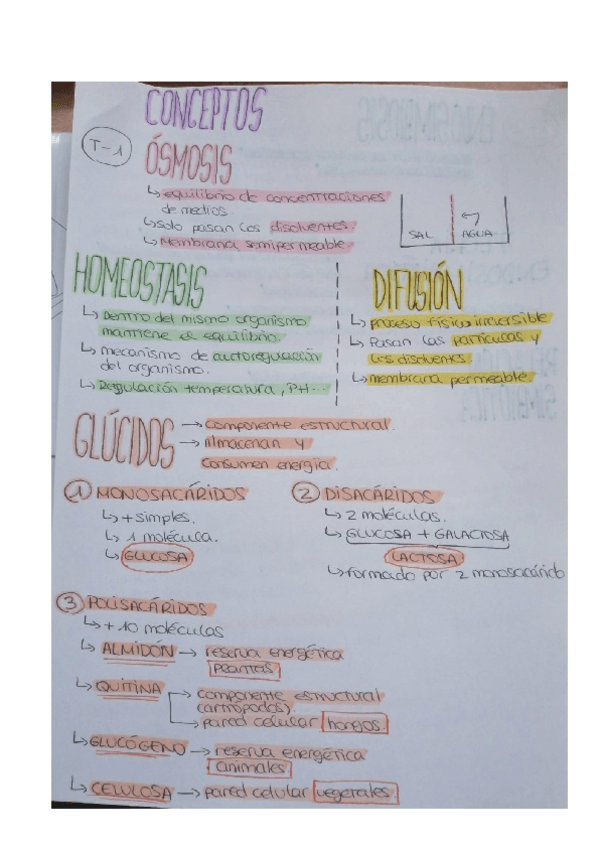 CONCEPTOS
T-1
ÓSMOSIS
↳ equilibrio de concentraciones
de medios.
↳ solo pasan los disolventes
↳ Membrana semipermeable
SAL
AGUA
HOMEOSTASIS
↳ Dentro del mismo organismo
mantiene el equilibrio.
↳ mecanismo de autoregulación
del organismo.
↳ Regulación temperatura, PH...
DIFUSIÓN
↳ proceso físico irreversible
↳ Pasan las partículas y
los disolventes
↳ membrana permeable
GLÚCIDOS
→ componente estructural.
→ Almacenan y
consumen energía.
1 MONOSACÁRIDOS
↳ + simples.
↳ 1 molécula.
↳ GLUCOSA
2 DISACÁRIDOS
↳ 2 moléculas.
↳ GLUCOSA + GALACTOSA
LACTOSA
↳ formado por 2 monosacárido
3 POLISACÁRIDOS
↳ + 10 moléculas
↳ ALMIDÓN → reserva energética
plantas
↳ QUITINA → componente estructural
(artropodos).
→ pared celular hongos
↳ GLUCÓGENO → reserva energética
animales
↳ CELULOSA → pared celular vegetales